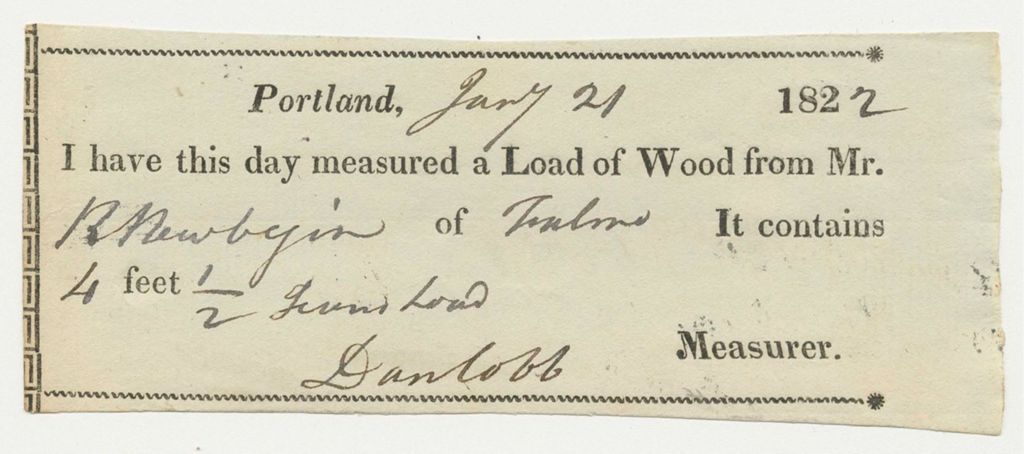 Portland, Jany 21 1822
I have this day measured a Load of Wood from Mr.
R Newbegin of It contains
4 feet 1/2 Load
Dan Cobb Measurer.